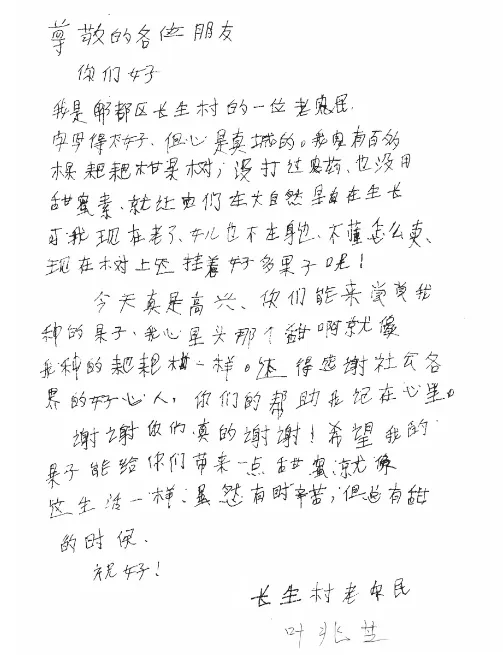 尊敬的各位朋友
你们好
我是郫都区长生村的一位老农民.
字写得不好、但心是真城的。我家有百多
棵耙耙柑果树；没打过农药、也没用
甜蜜素、就让它们在大自然里自在生长
可我现在老了、女儿也不在身边、不懂怎么卖、
现在树上还挂着好多果子呢！
今天真是高兴、你们能来赏赏我
种的果子、我心里头那个甜啊就像
我种的耙耙柑一样。还得感谢社会各
界的好心人，你们的帮助我记在心里。
谢谢你们真的谢谢！希望我的
果子能给你们带来一点甜蜜就像
这生活一样、虽然有时辛苦；但总有甜
的时候、
祝好！
长生村老农民
叶兆芝